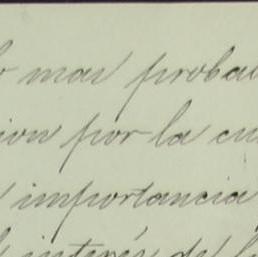 mas proba
ion por la cu
importancia
interés de l